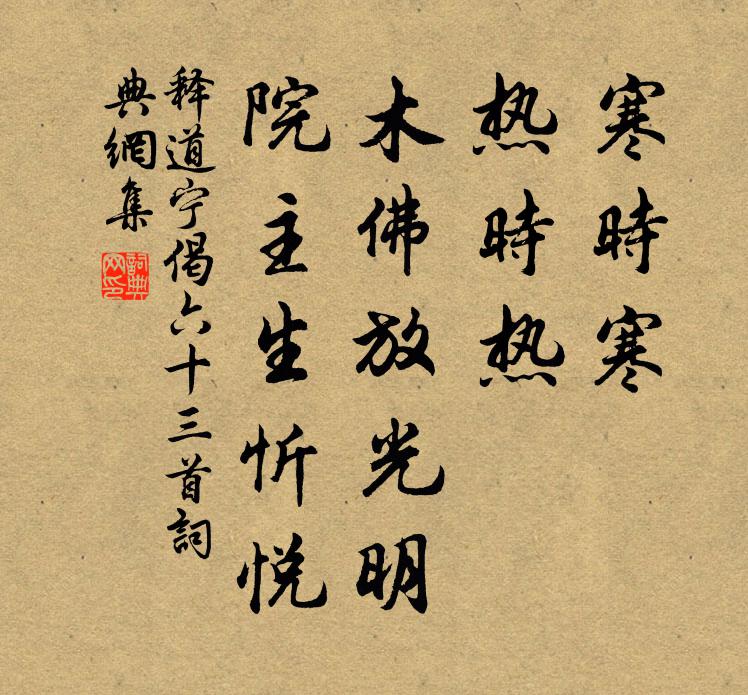 寒時寒
热時热
木佛放光明
院主生忻悦
释道宁偈六十三首詞
典網集
詞典网印